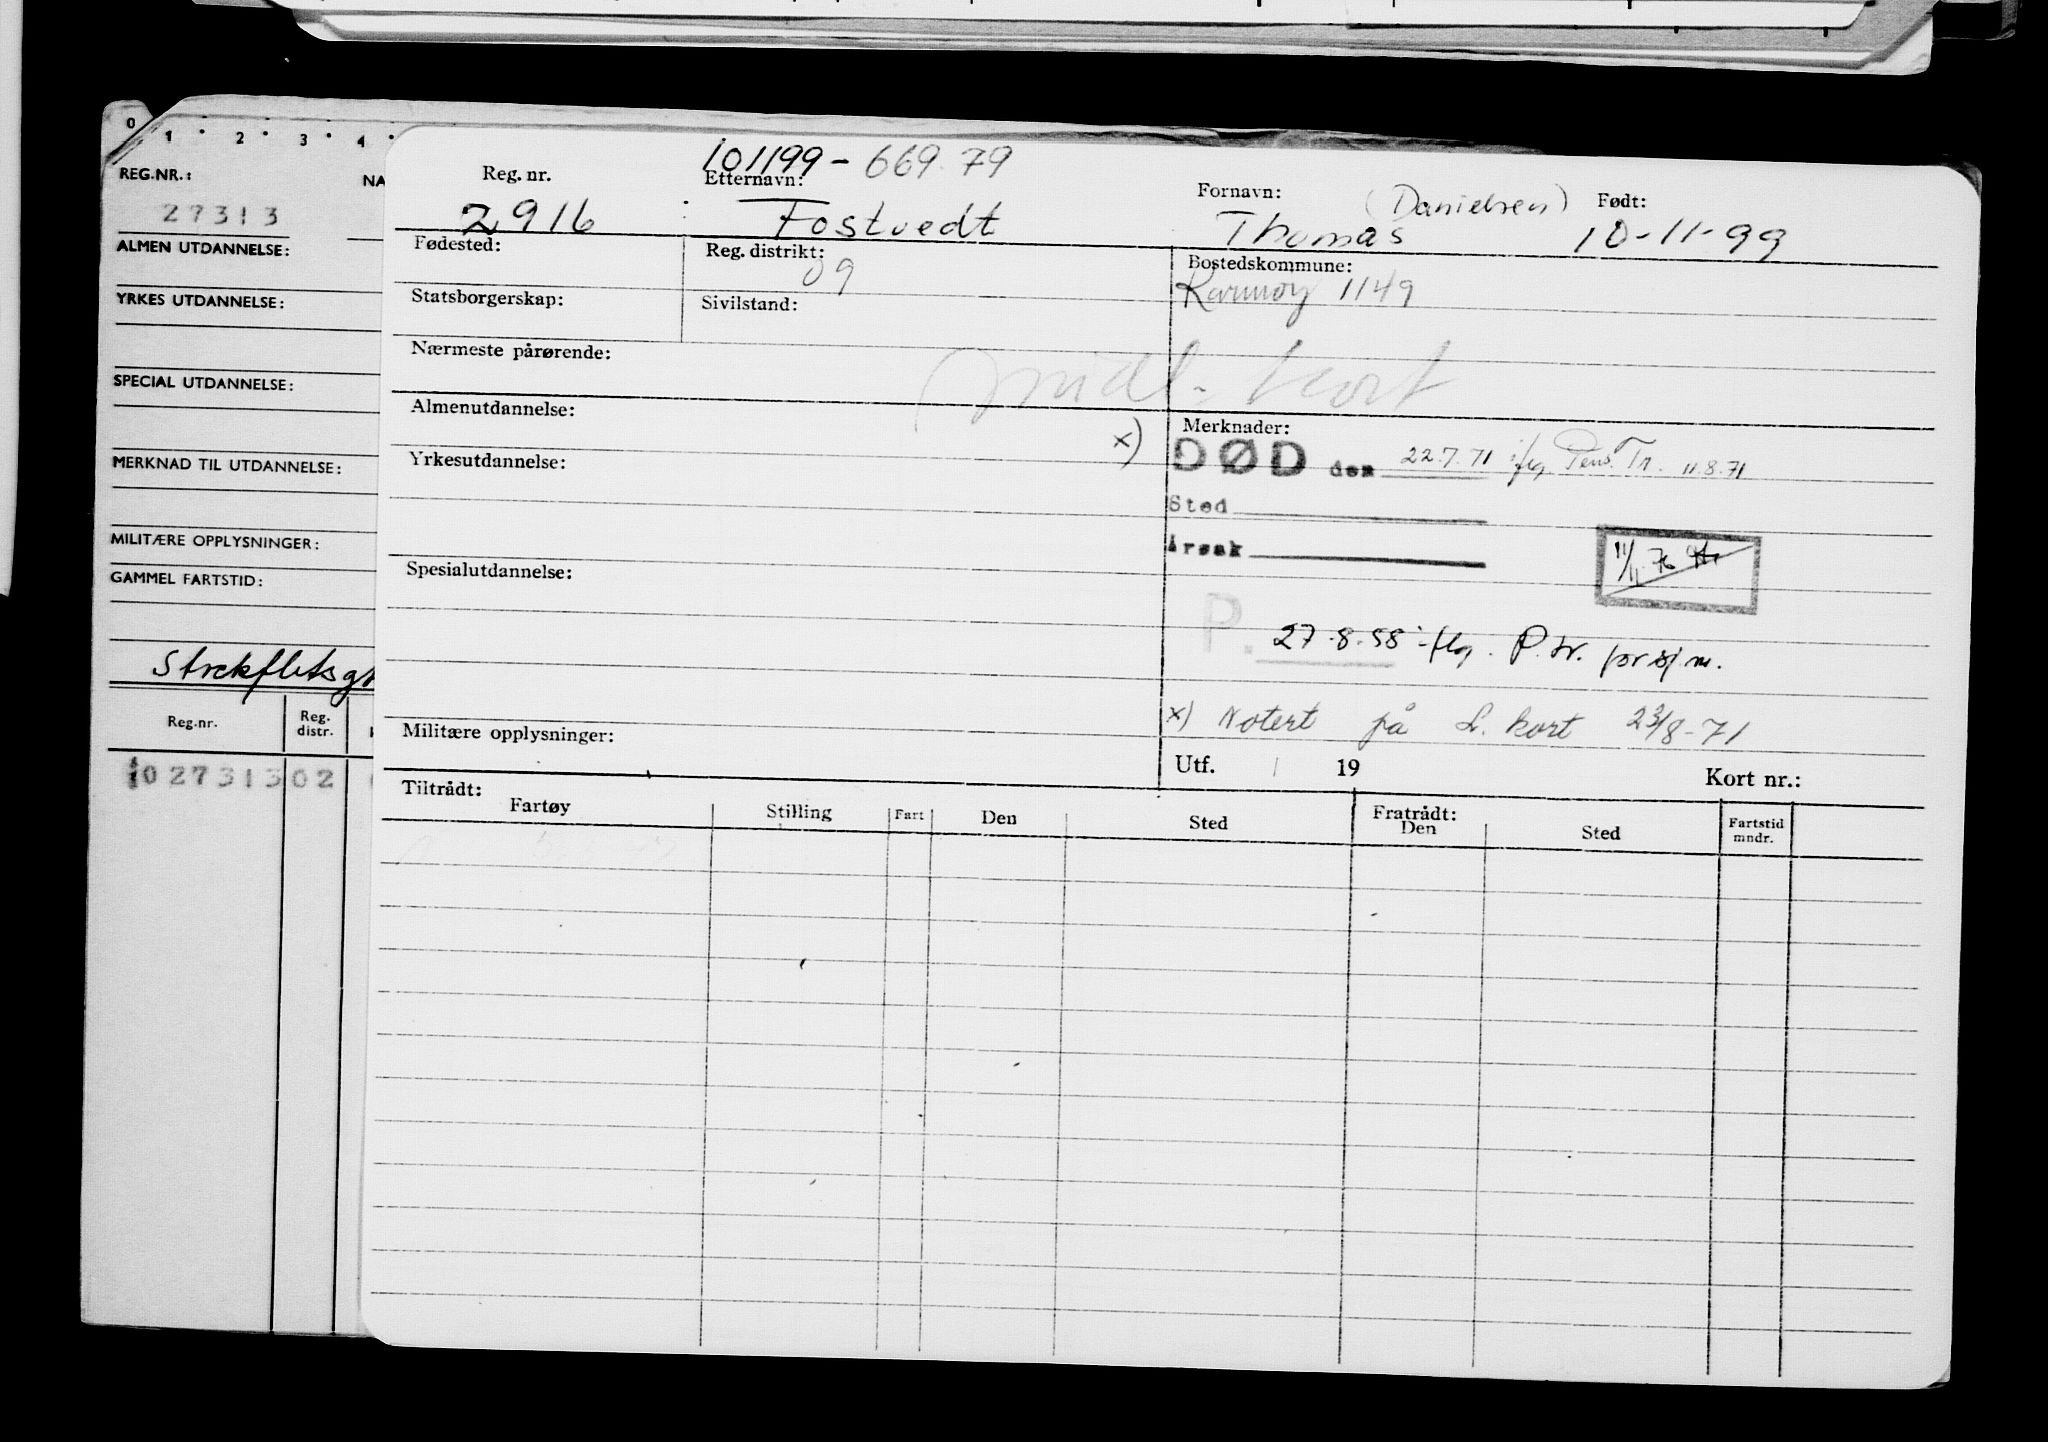 0 1 2 3 4
REG.NR.: NA
27313
ALMEN UTDANNELSE:
YRKES UTDANNELSE:
SPECIAL UTDANNELSE:
MERKNAD TIL UTDANNELSE:
MILITÆRE OPPLYSNINGER:
GAMMEL FARTSTID:
Reg.nr. Reg. distr.
02731302
101199-669.79
Reg. nr. Etternavn: Fornavn: Født:
2916 Fostvedt Thomas (Danielsen) 10-11-99
Fødested: Reg. distrikt: Bostedskommune:
09 Karmøy 1149
Statsborgerskap: Sivilstand:
Nærmeste pårørende:
midl. kort
Almenutdannelse: Merknader:
x) DØD den 22.7.71 iflg. Pens. Tr. 11.8.71
Yrkesutdannelse:
Sted
Årsak
11/11 76
Spesialutdannelse:
P. 27-8-58 iflg. P.tr. for sjm.
x) Notert på S. kort 23/8-71
Militære opplysninger:
Utf. / 19 Kort nr.:
Tiltrådt: Fratrådt:
Fartøy Stilling Fart Den Sted Den Sted Fartstid mndr.